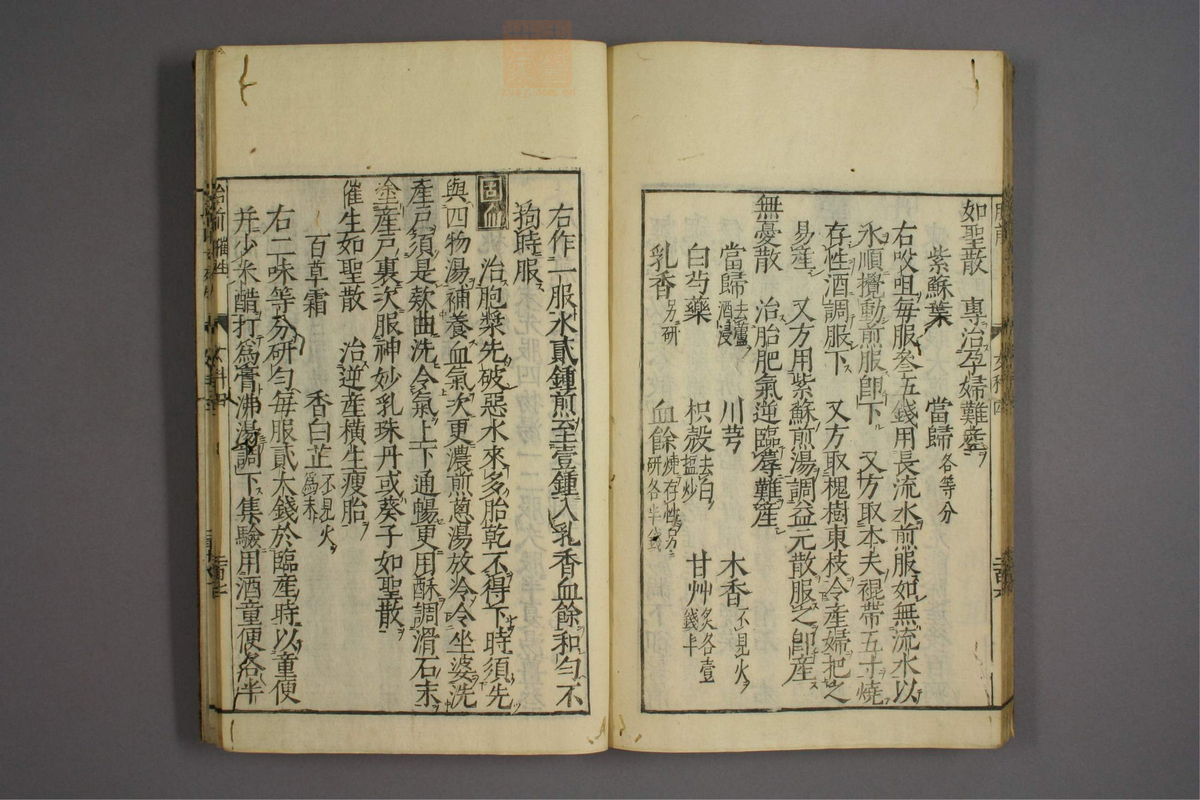 如聖散　專治孕婦難產
紫蘇葉　當歸各等分
右㕮咀每服叁五錢用長流水煎服如無流水以
水順攪動煎服卽下　又方取本夫裩帶五寸燒
存性酒調服下　又方取槐樹東枝令產婦把之
易產　又方用紫蘇煎湯調益元散服之卽產
無憂散　治胎肥氣逆臨蓐難產
當歸去蘆酒浸　川芎　木香不見火
白芍藥　枳殼去白搵炒　甘艸炙各壹錢半
乳香另研　血餘燒存性另研各半錢
右作一服水貳鍾煎至壹鍾入乳香血餘和勻不
拘時服
治胞漿先破惡水來多胎乾不得下時須先
與四物湯補養血氣次更濃煎蔥湯放冷令坐婆洗
產戶須是欵曲洗令氣上下通暢更用酥調滑石末
塗產戶裏次服神妙乳珠丹或葵子如聖散
催生如聖散　治逆產橫生瘦胎
百草霜　香白芷不見火爲末
右二味等分研勻每服貳大錢於臨產時以童便
并少米醋打爲膏沸湯調下集驗用酒童便各半